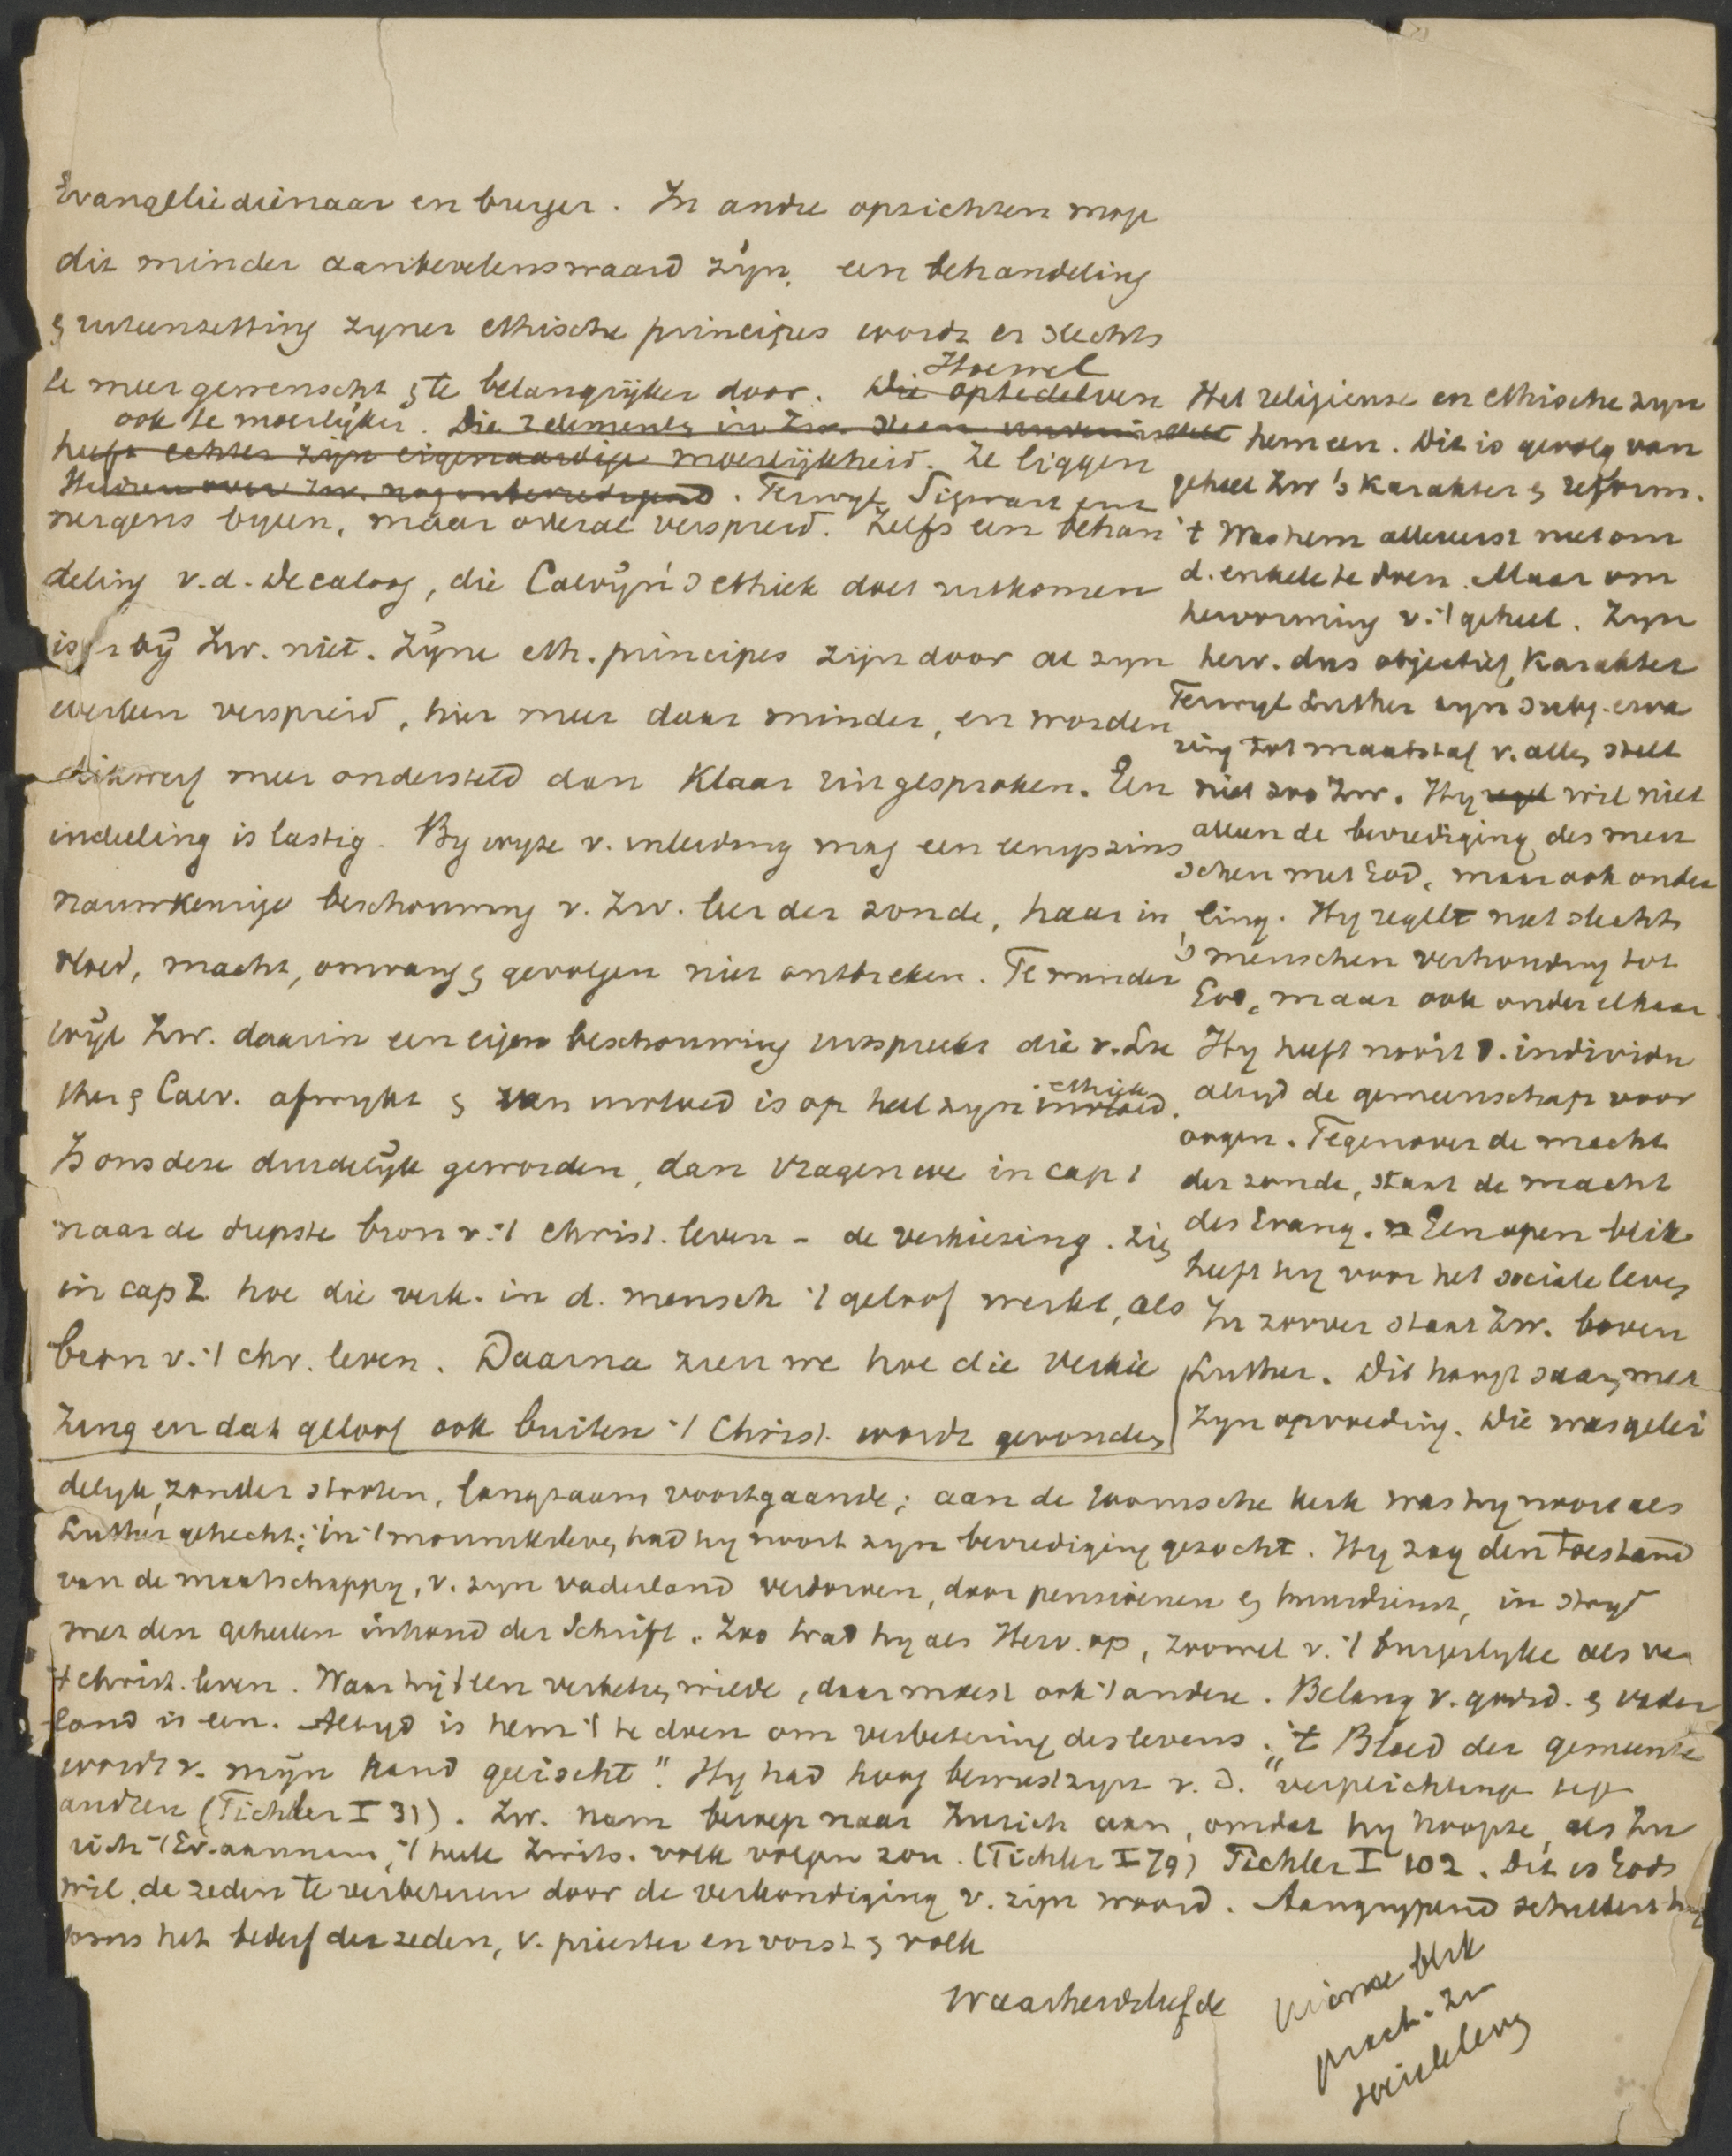 Evangeliedienaar en burger. In andre opzichten moge
dit minder aanbevelenswaard zijn, een behandeling
& uiteenzetting zyner ethische principes wordt er slechts
te meer gewenscht & te belangrijker door. Die optedelven
Hoewel
ook te moeilyker. Die elementen in Zw.
heeft echter zijn eigenaardige moeilijkheid. Ze liggen
Heiden over Zw. nog onbevredigend. Terwyl Sigwart
nergens byeen, maar overal verspreid. Zelfs een behan
deling v.d. Decaloog, die Calvijn's ethiek doet uitkomen
is er bij Zw. niet. Zijne eth. principes zijn door al zyn
werken verspreid, hier meer daar minder, en worden
dikwerf meer ondersteld dan klaar uitgesproken. Een
indeeling is lastig. By wyze v. inleiding mag een eenigszins
nauwkeurige beschouwing v. Zw. leer der zonde, haar in
vloed, macht, omvang & gevolgen niet ontbreken. Te minder
wijl Zw. daarin een eigen beschouwing uitspreekt die v. Lu
ther & Calv. afwykt & van invloed is op heel zyn invloed.
ethiek
Is ons deze duidelijk geworden, dan vragen we in cap 1
naar de diepste bron v. 't Christ. leven - de verkiezing. Zien
in cap 2 hoe die verk. in d. mensch 't geloof werkt, als
bron v. 't chr. leven. Daarna zien we hoe die verkie
zing en dat geloof ook buiten 't Christ. wordt gevonden
Het religieuse en ethische zyn
hem een. Dit is gevolg van
geheel Zw's karakter & reform.
't Was hem allereerst niet om
d. enkele te doen. Maar om
hervorming v. 't geheel. Zyn
herv. dus objectief karakter
Terwyl Luther zyn subj. erva
ring tot maatstaf v. alles stelt
niet zoo Zw. Hy regel wil niet
alleen de bevrediging des men
schen met God, maar ook onder
ling. Hy regelt niet slechts
's menschen verhouding tot
God, maar ook onder elkaar
Hy heeft nooit d. individu
altyd de gemeenschap voor
oogen. Tegenover de macht
der zonde, staat de macht
des Evang. Een open blik
heeft hy voor het sociale leven
In zoover staat Zw. boven
Luther. Dit hangt saam met
zyn opvoeding. Die was gelei
delyk, zonder stooten, langzaam voortgaande; aan de roomsche kerk was hy nooit als
Luther gehecht; in 't monniksleven had hy nooit zyn bevrediging gezocht. Hy zag den toestand
van de maatschappy, v. zyn vaderland verdorven, door pensioenen & huurdienst, in stryd
met den geheelen inhoud der Schrift. Zoo trad hy als Herv. op, zoowel v. 't burgerlyke als van
't christ. leven. Waar hij 't een verbeteren wilde, daar moest ook 't andere. Belang v. godsd. & vader
land is een. Altyd is hem 't te doen om verbetering des levens. "'t Bloed der gemeente
wordt v. mijn hand geëischt". Hy had hoog bewustzyn v. d. "verplichtinge
andren (Tichler I 31). Zw. nam beroep naar Zurich aan, omdat hy hoopte, als Zu
rich 't Ev. aannam, 't heele Zwits. volk volgen zou. (Tichler I 79) Tichler I 102. Dit is Gods
wil, de zeden te verbeteren door de verkondiging v. zijn woord. Aangrypend schildert hij
soms het bederf der zeden, v. priester en vorst & volk
Waarheidsliefde
blik
pract. zin
sociale leven